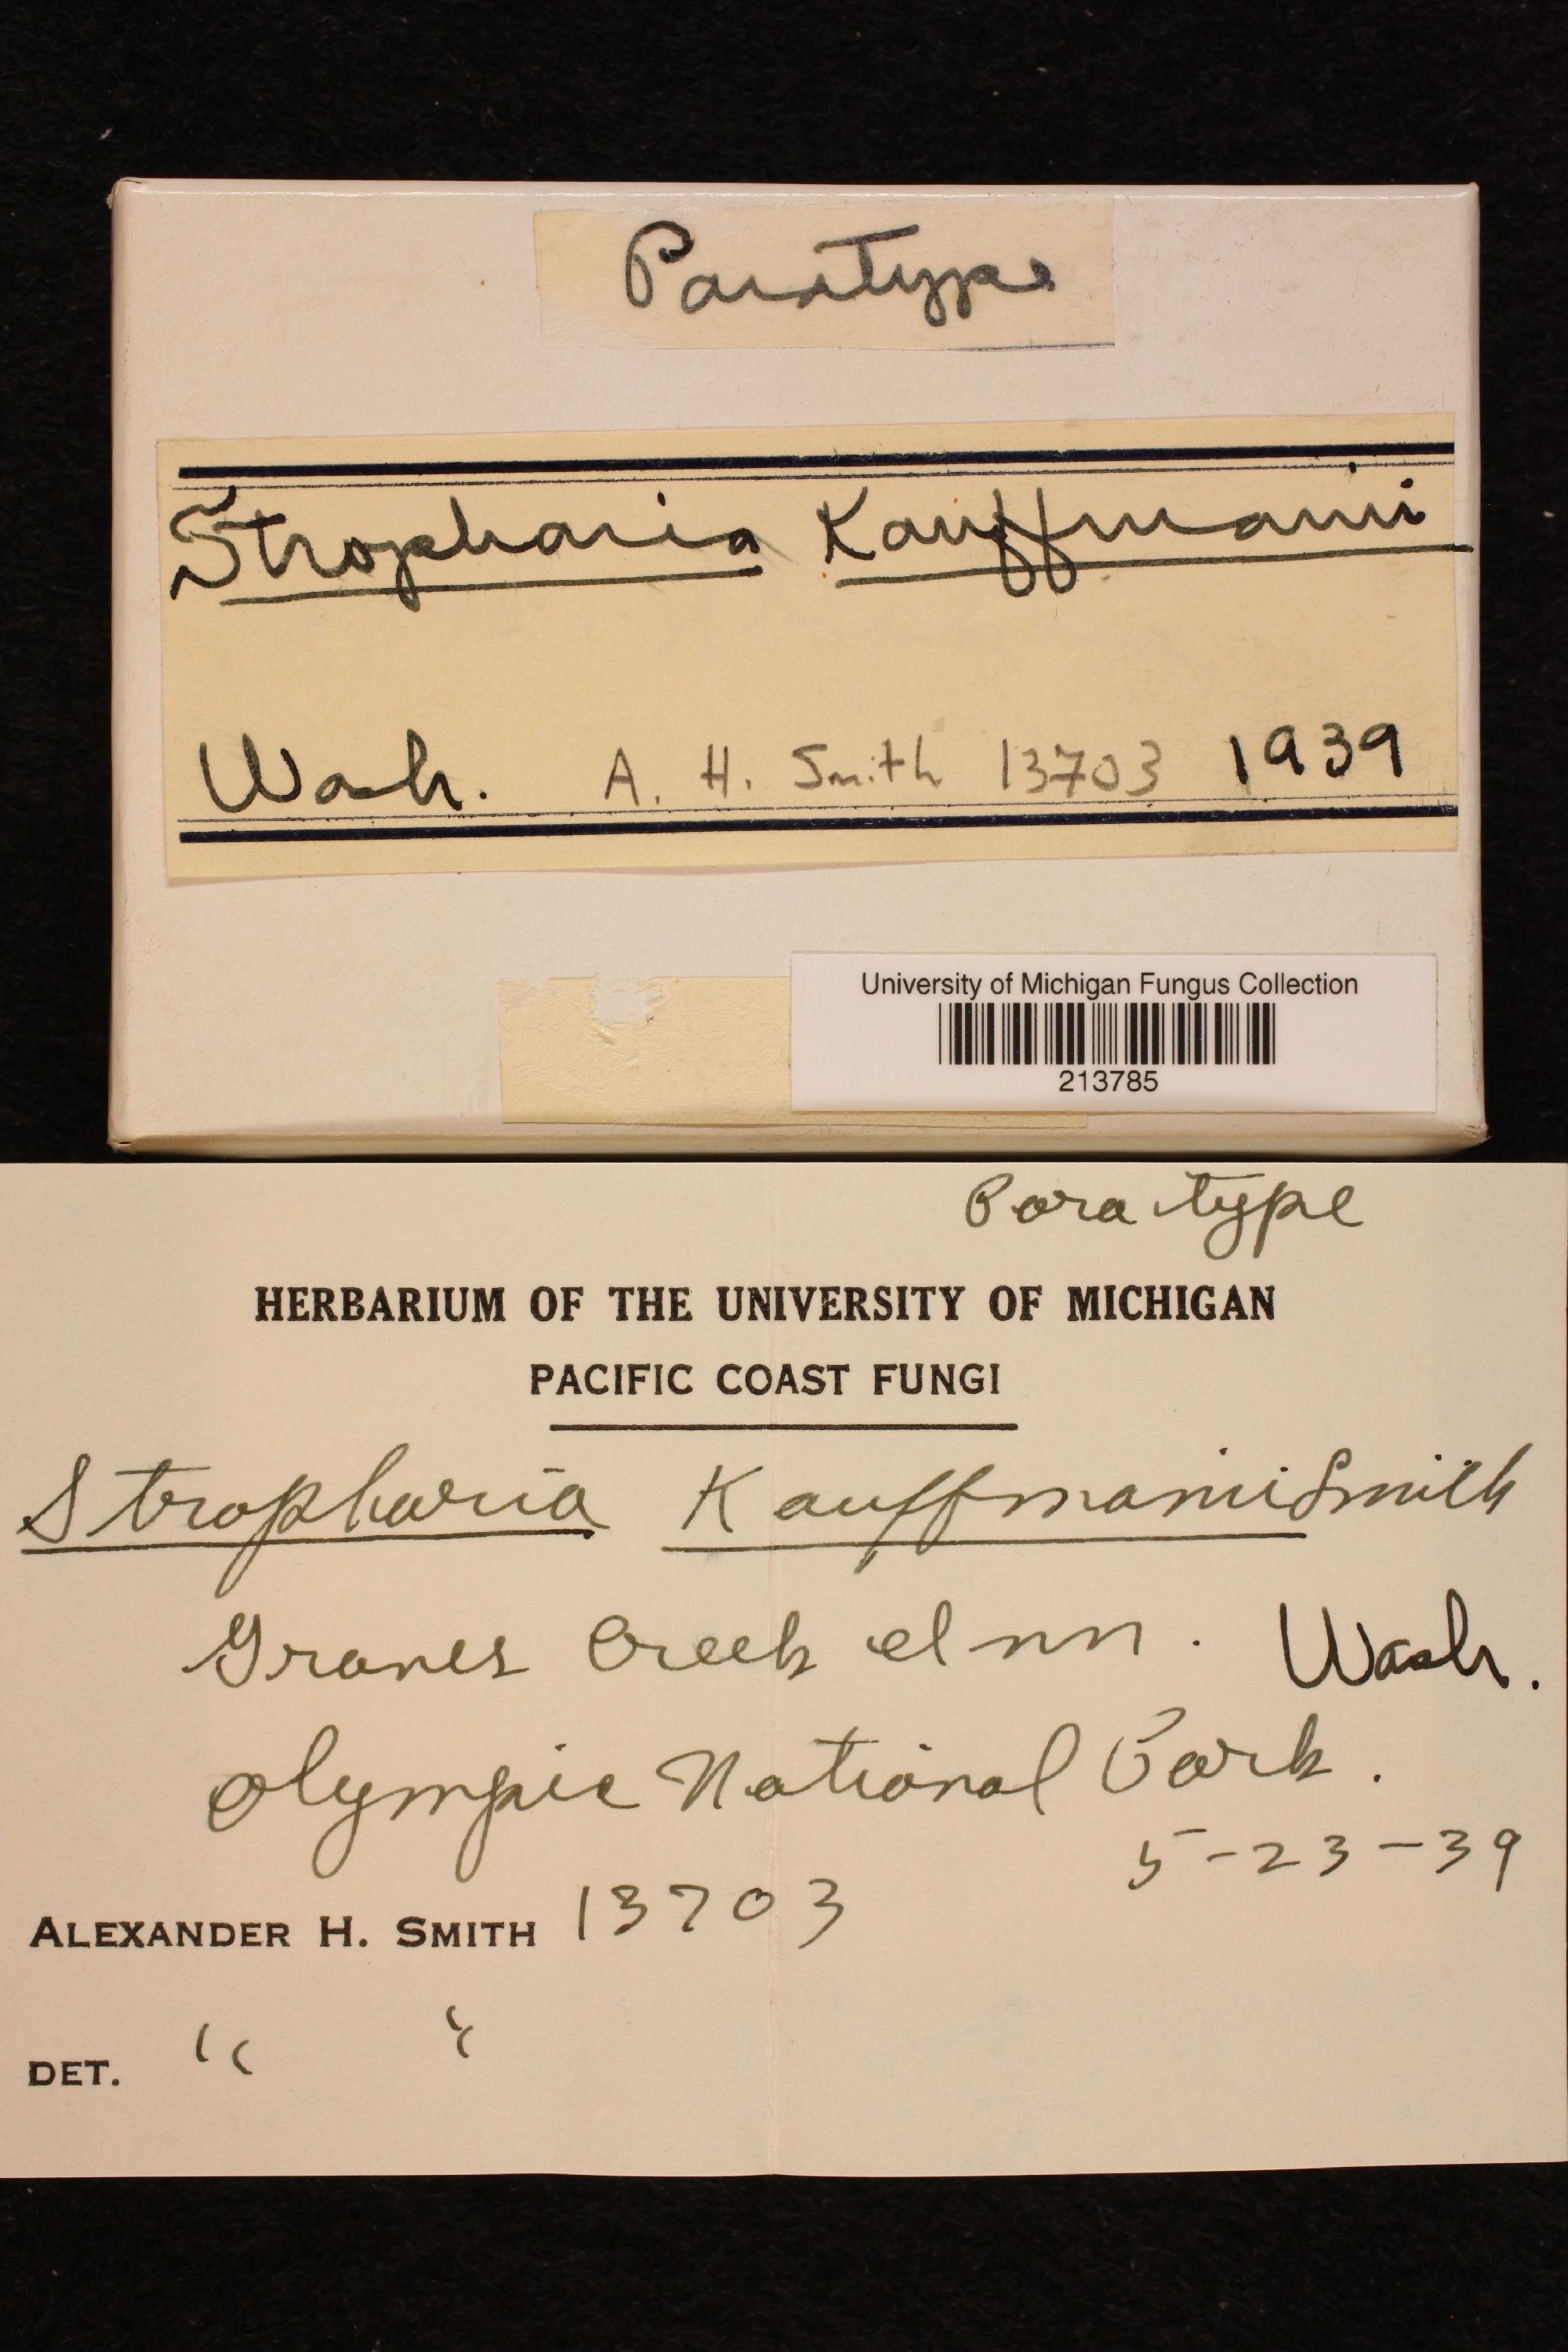 Paratype
Stropharia Kauffmanii
Wash. A. H. Smith 13703 1939
University of Michigan Fungus Collection
213785
Paratype
HERBARIUM OF THE UNIVERSITY OF MICHIGAN
PACIFIC COAST FUNGI
Stropharia Kauffmanii Smith
Graves Creek Inn. Wash.
Olympic National Park.
5-23-39
ALEXANDER H. SMITH 13703
DET. " "